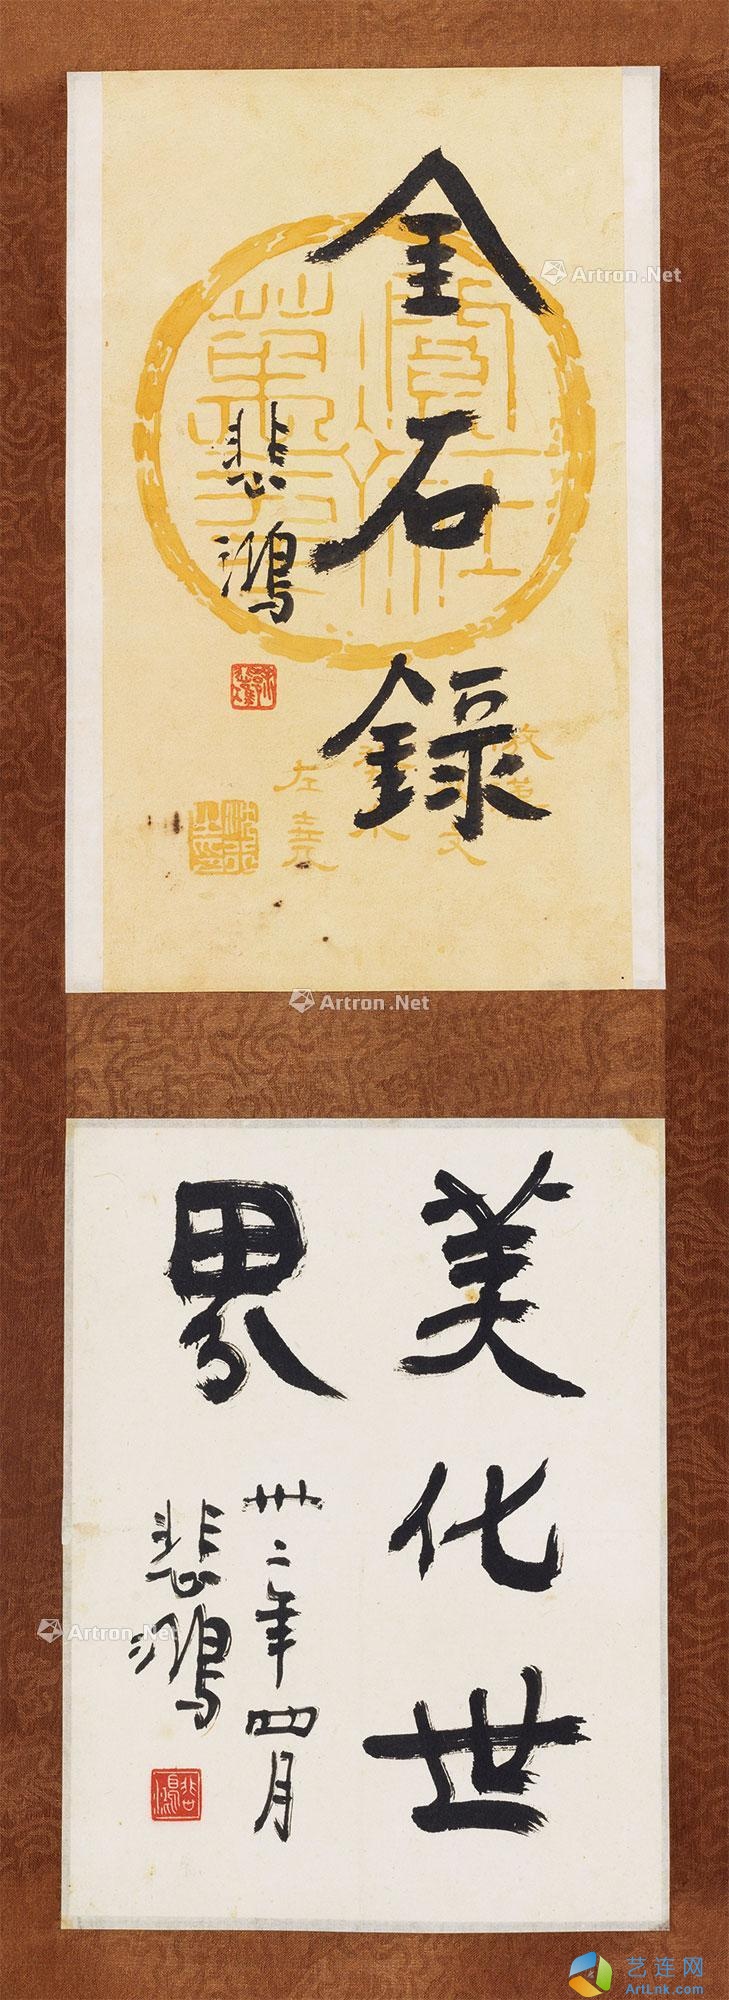 金石錄
悲鴻
左堯
Artron.Net
Artron.Net
美化世
界
卅二年四月
悲鴻
悲鴻
Artron.Net
艺连网
ArtLnk.com